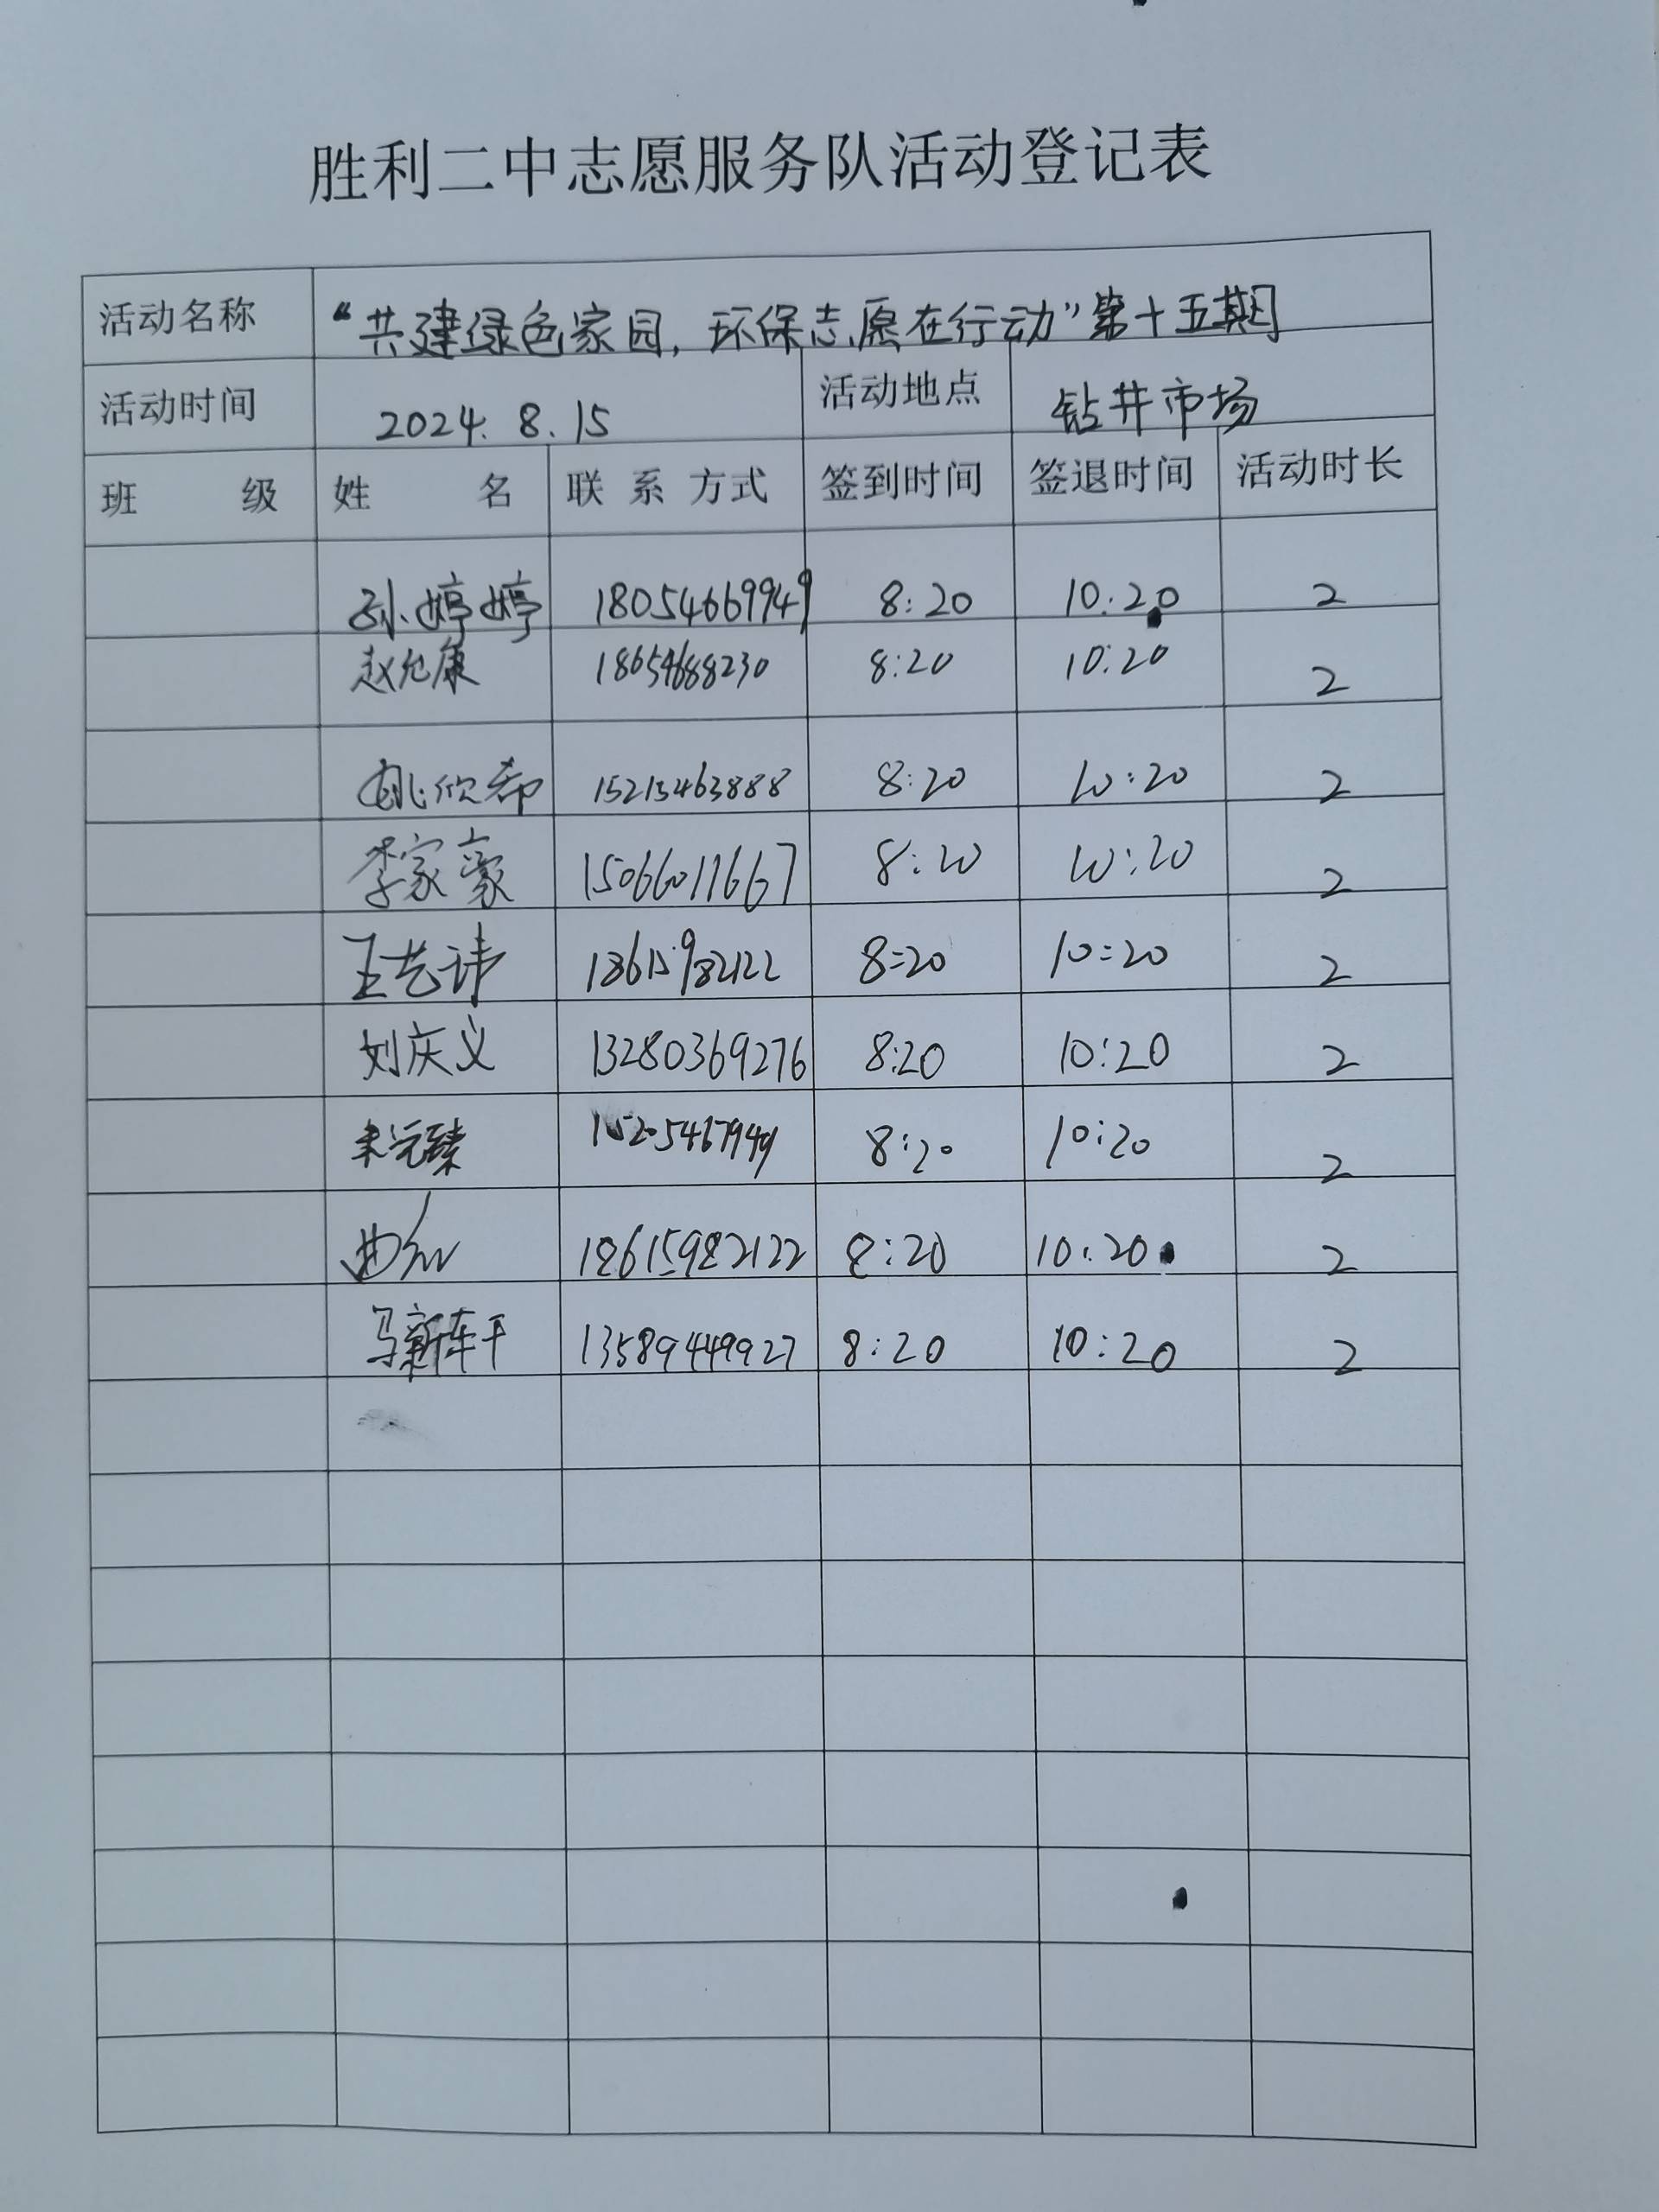 胜利二中志愿服务队活动登记表
活动名称 “共建绿色家园，环保志愿在行动”第十五期
活动时间 2024.8.15 活动地点 钻井市场
班 级 姓 名 联系方式 签到时间 签退时间 活动时长
孙婷婷 18054669949 8:20 10:20 2
赵允康 18654688230 8:20 10:20 2
姚欣希 15215463888 8:20 10:20 2
李家豪 15066011667 8:20 10:20 2
王艺讳 18615982122 8:20 10:20 2
刘庆义 13280369276 8:20 10:20 2
8:20 10:20 2
18615982122 8:20 10:20 2
马新车干 13589449927 8:20 10:20 2